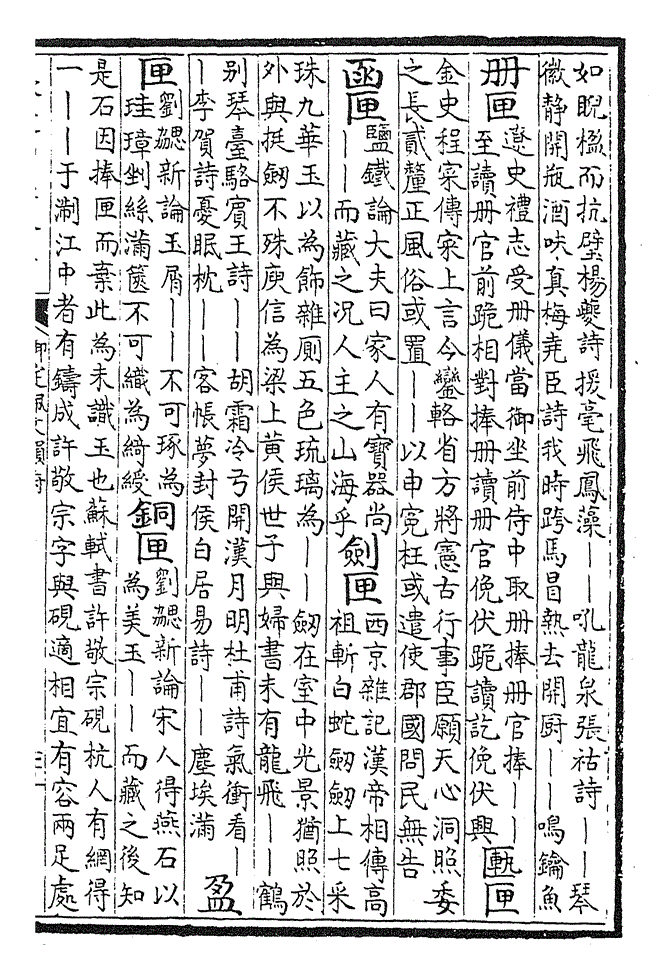 如睨楹而抗璧楊夔詩援毫飛鳳藻——吼龍泉張祜詩——琴
徽静開瓶酒味真梅堯臣詩我時跨馬冒熱去開厨——鳴鑰魚
册匣
遼史禮志受册儀當御坐前侍中取册捧册官捧——
至讀册官前跪相對捧册讀册官俛伏跪讀訖俛伏興
匭匣
金史程寀傳寀上言今鑾輅省方將憲古行事臣願天心洞照委
之長貳釐正風俗或置——以申寃枉或遣使郡國問民無告
函匣
鹽鐵論大夫曰家人有寶器尚
——而藏之况人主之山海乎
劍匣
西京雜記漢帝相傳高
祖斬白蛇劒劒上七采
珠九華玉以為飾雜厠五色琉璃為——劒在室中光景猶照於
外與挺劒不殊庾信為梁上黄侯世子與婦書未有龍飛——鶴
别琴臺駱賓王詩——胡霜冷弓開漢月明杜甫詩氣衝看—
—李賀詩憂眠枕——客帳夢封侯白居易詩——塵埃滿
盈匣
劉勰新論玉屑——不可琢為
珪璋剉絲滿篋不可織為綺綬
銅匣
劉勰新論宋人得燕石以
為美玉——而藏之後知
是石因捧匣而棄此為未識玉也蘇軾書許敬宗硯杭人有網得
一——于淛江中者有鑄成許敬宗字與硯適相宜有容兩足處
御定佩文韻府